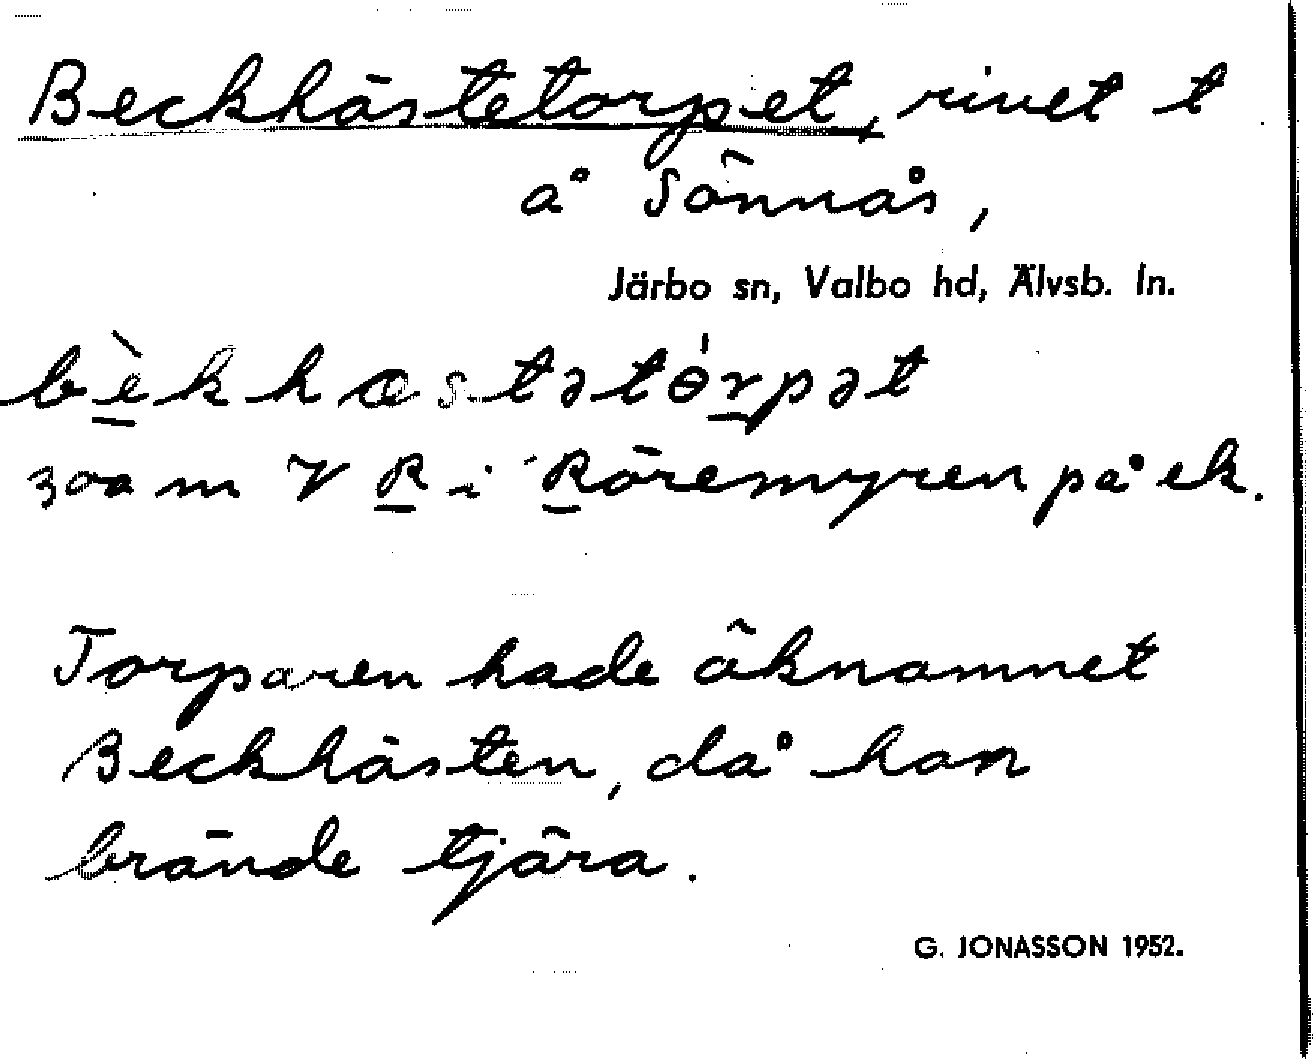 Beckhästetorpet, rivet t
å Sönnås,
Järbo sn, Valbo hd, Älvsb. ln.
bèkhæstətɵ́rpət
300 m V R i Röremyren på ek.
Torparen hade öknamnet
Beckhästen, då han
brände tjära.
G. JONASSON 1952.